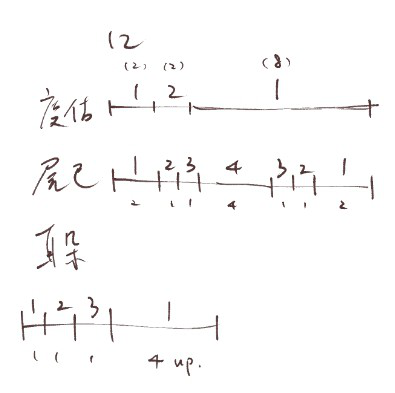 12
(2) (2) (8)
1 2 1
度估
1 2 3 4 3 2 1
尾巴
2 1 1 4 1 1 2
耳朵
1 2 3 1
1 1 1 4 up.